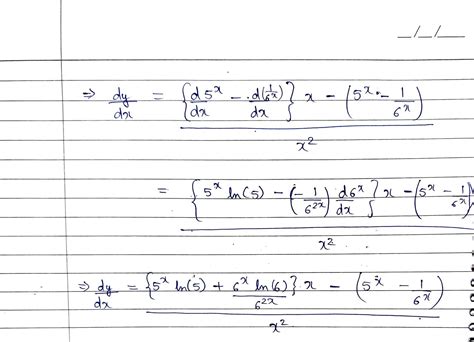 __/__/__
⇒ dy/dx = {d5^x/dx - d(1/6^x)/dx} x - (5^x - 1/6^x) / x^2
= {5^x ln(5) - (-1/6^{2x}) d6^x/dx} x - (5^x - 1/6^x) / x^2
⇒ dy/dx = {5^x ln(5) + 6^x ln(6)/6^{2x}} x - (5^x - 1/6^x) / x^2